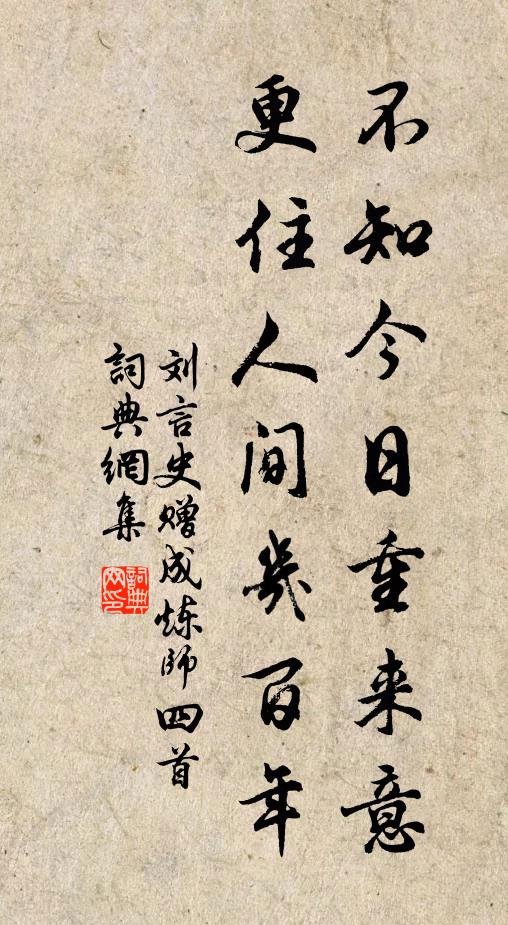 不知今日重来意
更住人间几百年
刘言史赠成炼师四首
詞典網集
詞典网印